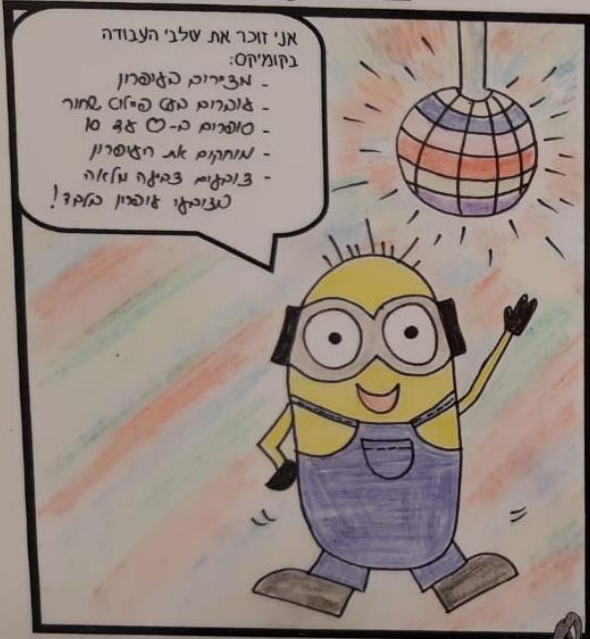 אני זוכר את שלבי העבודה
בקומיקס:
- מציירים בעיפרון
- עוברים בעט פיילוט שחור
- סופרים ב-♡ עד 10
- מוחקים את העיפרון
- צובעים צביעה מלאה
בצבעי עיפרון בלבד!